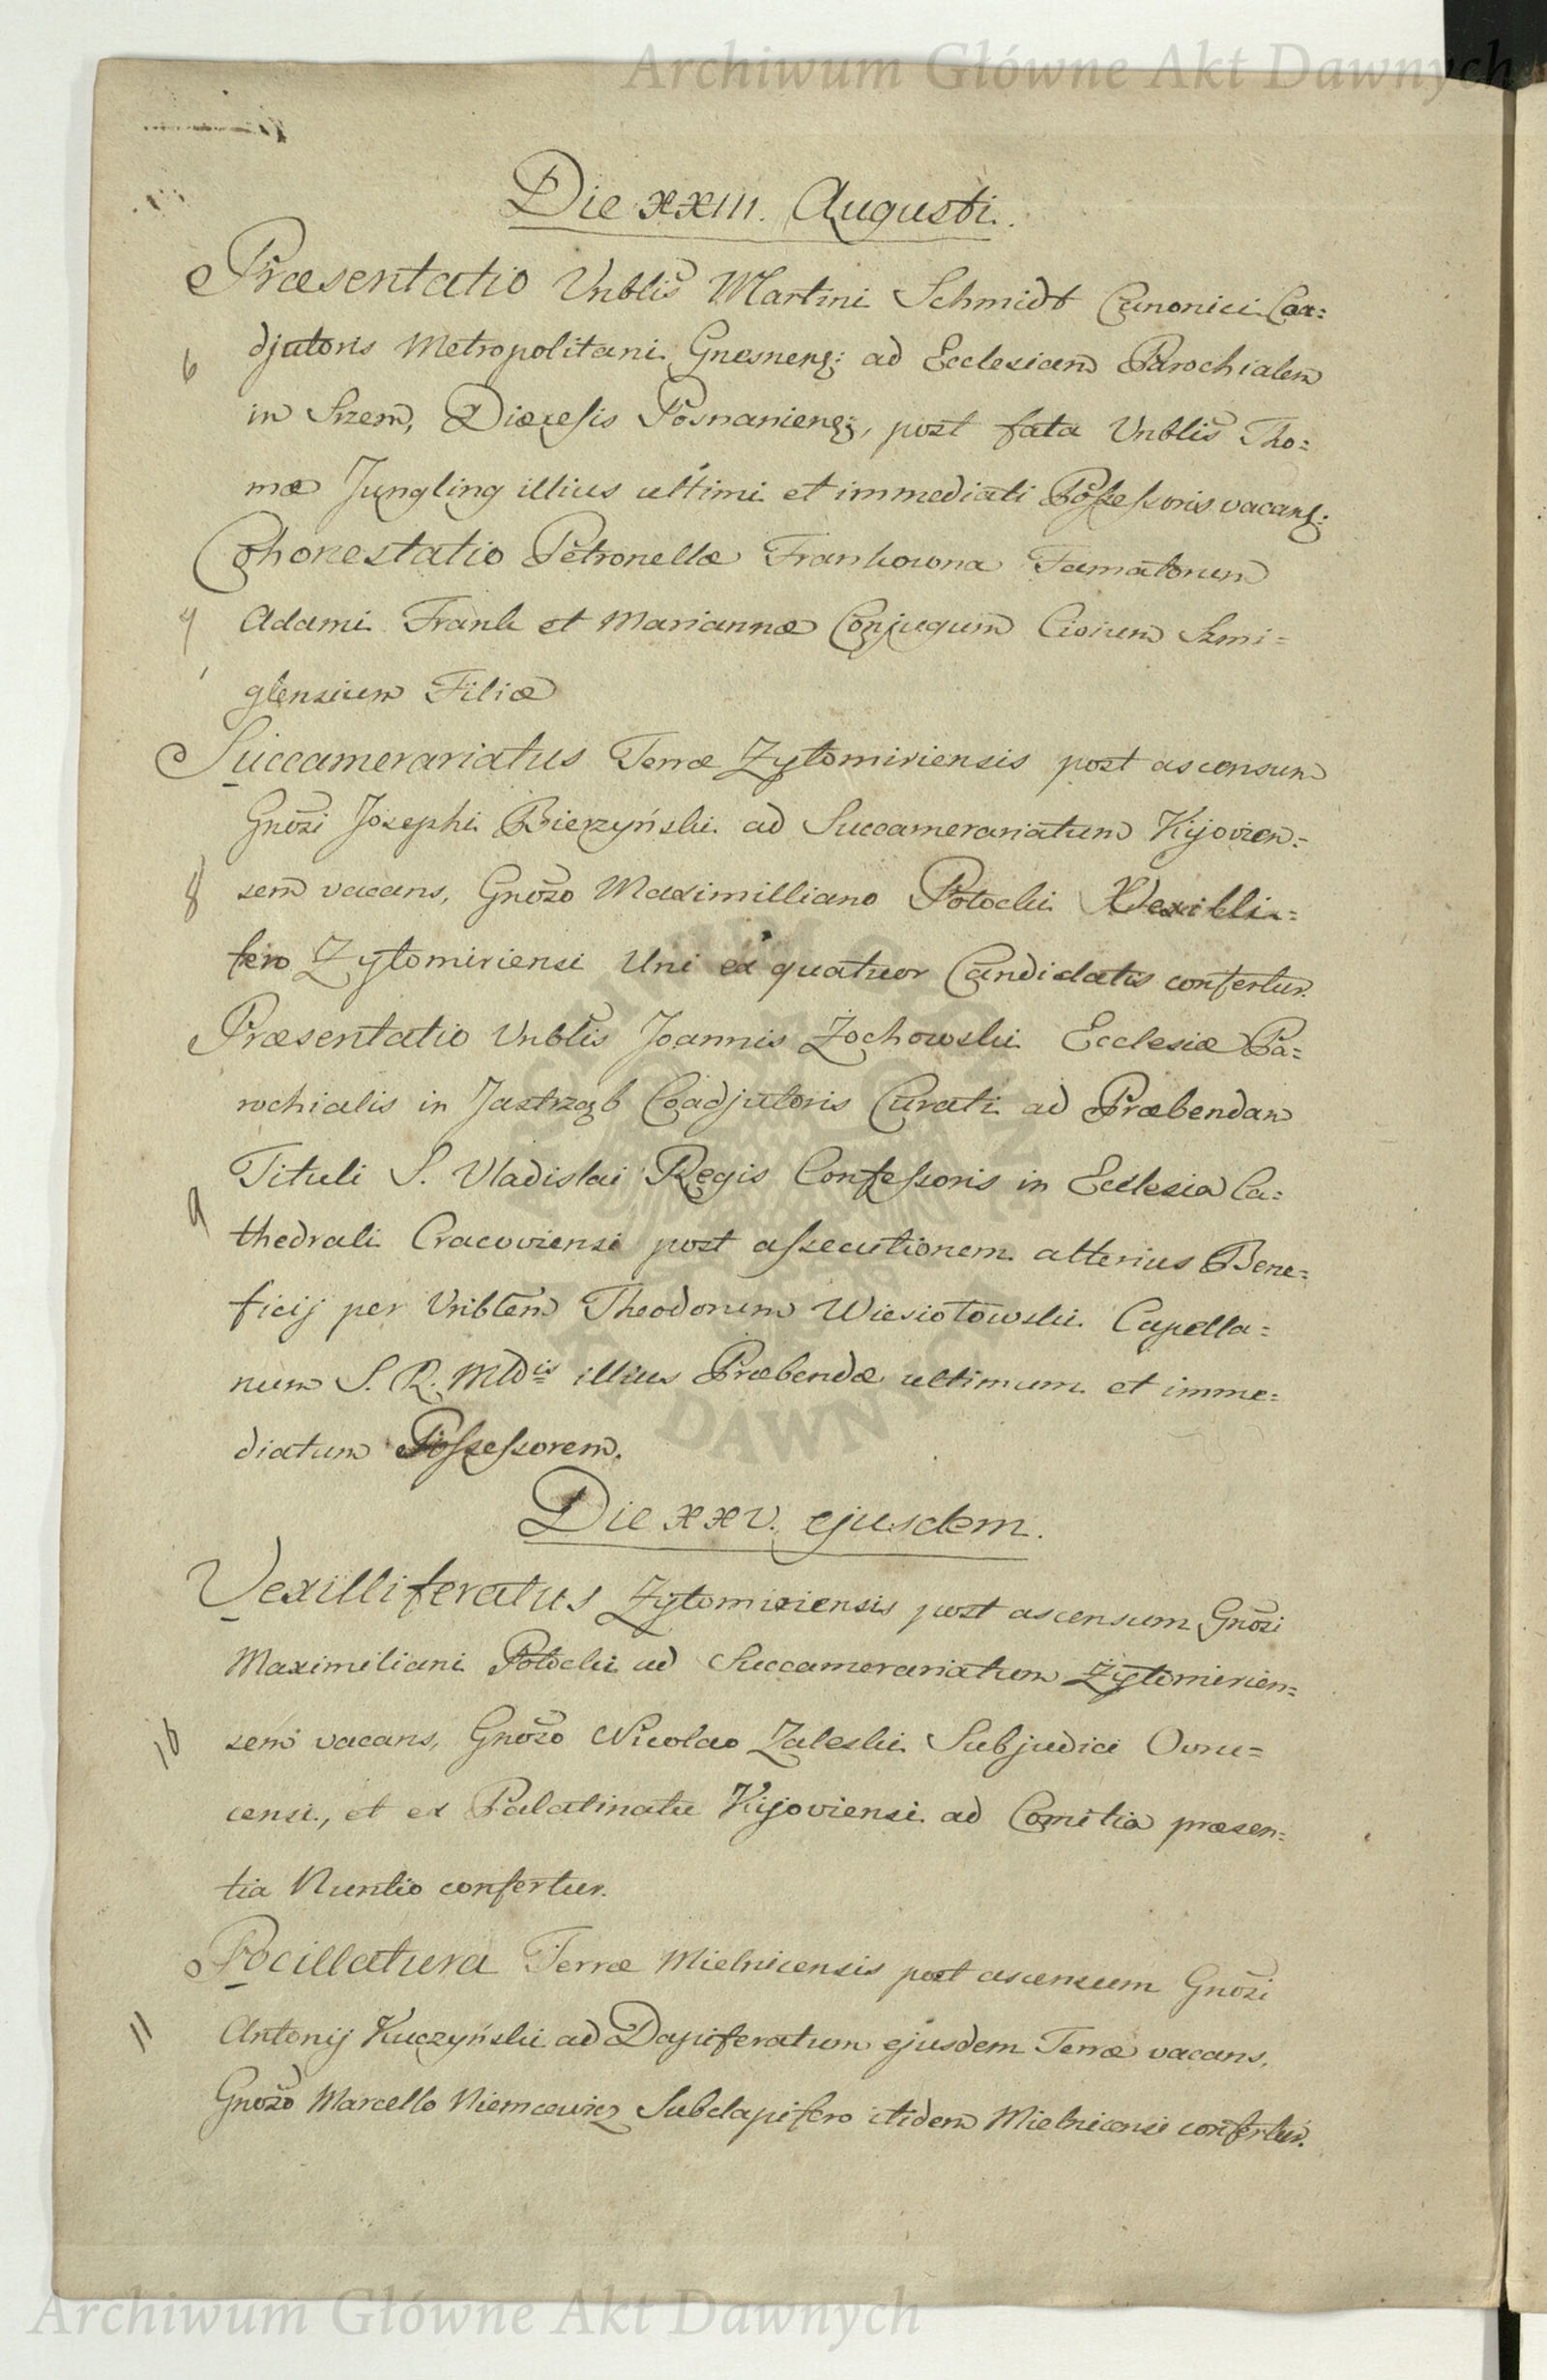 Archiwum Główne Akt Dawnych
Die XXIII. Augusti.
Præsentatio Vnblis Martini Schmidt Canonici Coa=
6 djutoris Metropolitani Gnesnens: ad Ecclesiam Parochialem
in Szrem, Diæcesis Posnaniens:, post fata Vnblis Tho=
mæ Jungling illius ultimi et immediati Possessoris vacans:
Cohonestatio Petronellæ Frankowna Famatorum
7 Adami Frank et Mariannæ Conjugum Civium Szmi=
glensium Filiæ
Succamerariatus Terræ Zytomiriensis post ascensum
Gnosi Josephi Bierzyński ad Succamerariatum Kijovien=
8 sem vacans, Gnoso Maximilliano Potocki Vexilli=
fero Zytomiriensi Uni ex quatuor Candidatis confertur.
Præsentatio Vnblis Joannis Żochowski Ecclesiæ Pa=
rochialis in Jastrząb Coadjutoris Curati ad Præbendam
9 Tituli S. Vladislai Regis Confessoris in Ecclesia Ca=
thedrali Cracoviensi post assecutionem alterius Bene=
ficij per Vnblem Theodorum Wiesiołowski Capella=
num S. R. Mtis illius Præbendæ ultimum et imme=
diatum Possessorem.
Die XXV. ejusdem.
Vexilliferatus Zytomiriensis post ascensum Gnosi
Maximiliani Potocki ad Succamerariatum Zytomirien=
10 sem vacans, Gnoso Nicolao Zaleski Subjudici Ovru=
censi, et ex Palatinatu Kijoviensi ad Comitia præsen=
tia Nuntio confertur.
Pocillatura Terræ Mielnicensis post ascensum Gnosi
11 Antonij Kuczyński ad Dapiferatum ejusdem Terræ vacans,
Gnoso Marcello Niemcewicz Subdapifero itidem Mielnicensi confertur.
Archiwum Główne Akt Dawnych